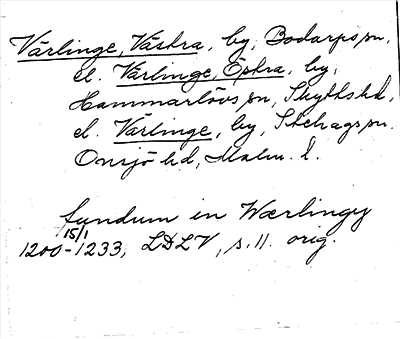 Värlinge, Västra, by, Bodarps sn,
el. Värlinge, Östra, by,
Hammarlövs sn, Skytts hd,
el. Värlinge, by, Stehags sn.
Onsjö hd, Malm. l.
Lundum in Wærlingy
15/1
1200-1233, LDLV, s. 11. orig.